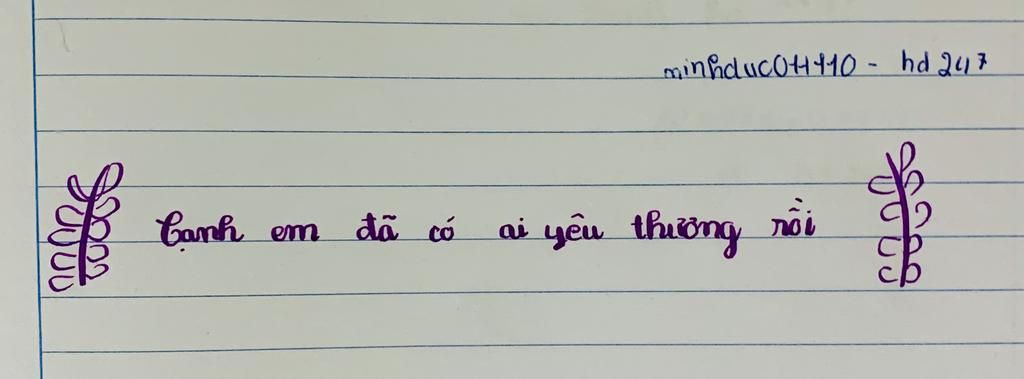 minhduc011110 - hd247
Cạnh em đã có ai yêu thương rồi